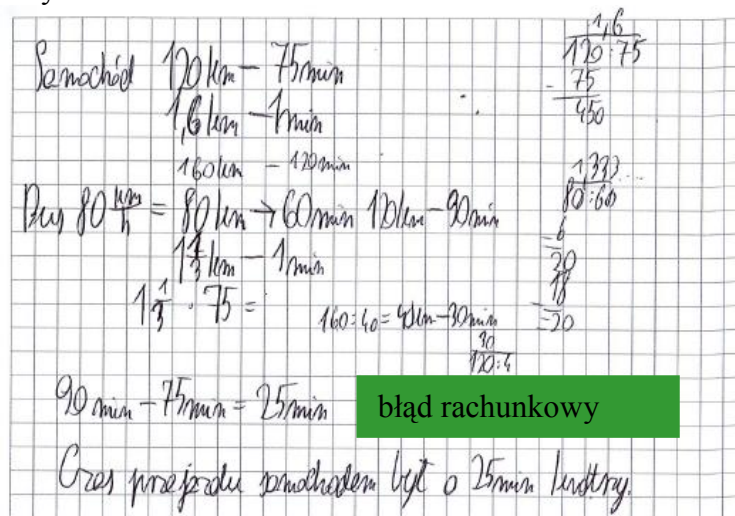 Samochód 120 km – 75 min
1,6 km – 1 min
160 km – 120 min
Bus 80 km/h = 80 km → 60 min 120 km – 90 min
1 1/3 km – 1 min
1 1/3 · 75 =
160:40 = 40 km – 30 min
30
120:4
90 min – 75 min = 25 min
błąd rachunkowy
Czas przejazdu samochodem był o 25 min krótszy.
1,6
120:75
- 75
450
1,333...
80:60
- 6
20
18
- 20